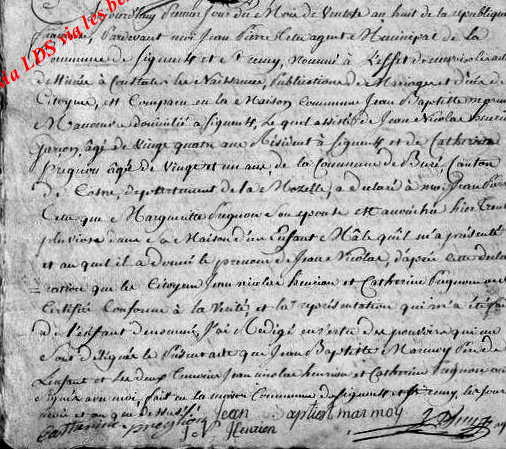 aujourd'huy premier jour du Mois de Ventose an huit de la republique
française, Pardevant moi Jean Pierre agent Municipal de la
Commune de Signeult et St remy, nommé à L'effet de
destinée à Constater les Naissances, Publications de Mariage et décès de
Citoyens, est Comparu en la Maison Commune Jean Baptiste marmoy
Manoeuvre domicilié a Signeult, Lequel assisté de Jean Nicolas henrion
Garçon, âgé de vingt quatre ans Résident à Signeult, et de Catherine
Pregnon âgée de vingt et un ans, de la Commune de Buré, Canton
de Cosne, département de la Mozelle, a declaré à moi Jean Pierre
que Margueritte Pregnon Son epouse est hier trente
pluviose dans Sa Maison d'un Enfant Mâle qu'il m'a présenté
et auquel il a donné le prenom de Jean Nicolas, d'après cette decla
ration que les Citoyens Jean nicolas henrion et Catherine Pregnon ont
Certifié Conforme à la Verité, et la représentation qui m'a été faite
de l'enfant denommé, J'ai Rédigé en vertu des pouvoirs qui me
Sont délégués le Présent acte que Jean Baptiste Marmoy Pere de
L'enfant et les deux temoins Jean nicolas henrion et Catherine Pregnon ont
Signés avec moi, fait en la maison Commune de Signeult et St remy, les jour
mois et an que dessus
Jean Baptiste marmoy
Catherine pregnon
J N Henrion
LDS via les